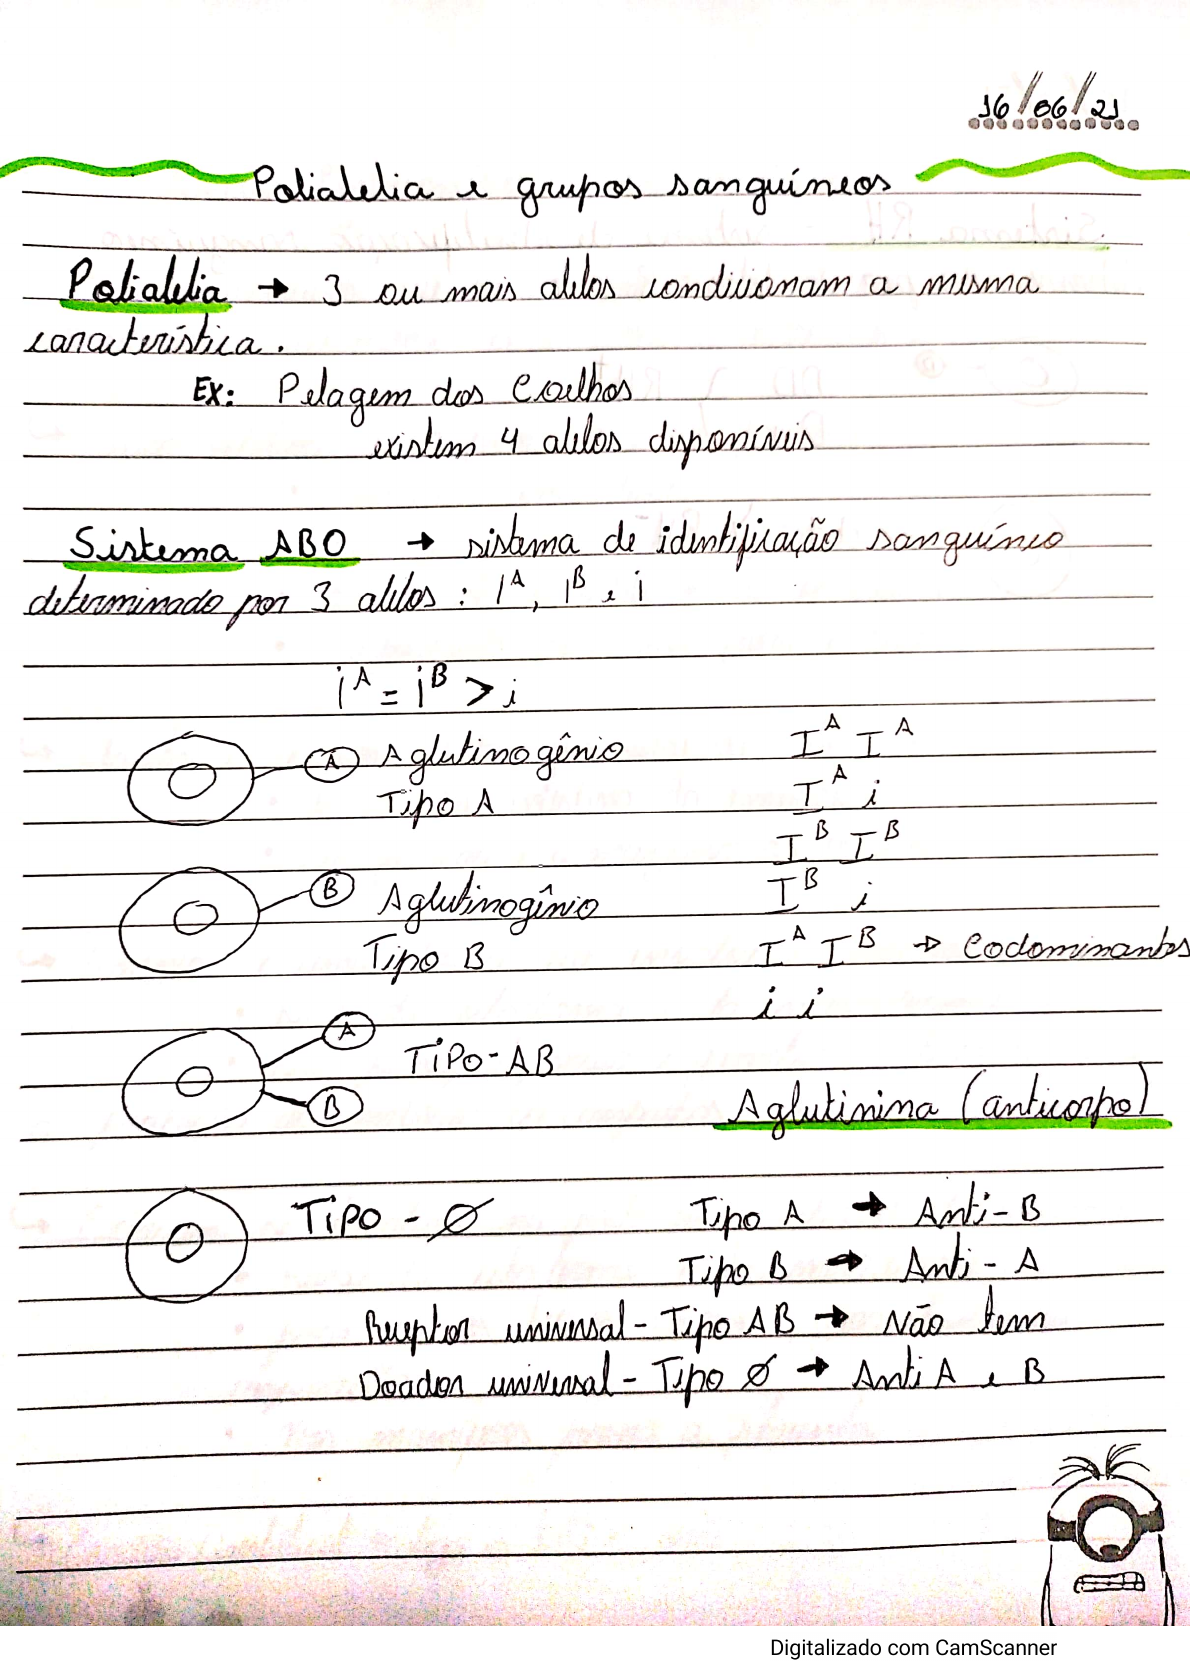 16/06/21
Polialelia e grupos sanguíneos
Polialelia → 3 ou mais alelos condicionam a mesma
característica.
Ex: Pelagem dos Coelhos
existem 4 alelos disponíveis
Sistema ABO → sistema de identificação sanguíneo
determinado por 3 alelos : I^A, I^B e i
i^A = i^B > i
A Aglutinogênio
Tipo A
I^A I^A
I^A i
I^B I^B
I^B i
B Aglutinogênio
Tipo B
I^A I^B → Codominantes
i i
A
B
TiPo-AB
Aglutinina (anticorpo)
TiPo - Ø
Tipo A → Anti-B
Tipo B → Anti-A
Receptor universal - Tipo AB → Não tem
Doador universal - Tipo Ø → Anti A e B
Digitalizado com CamScanner